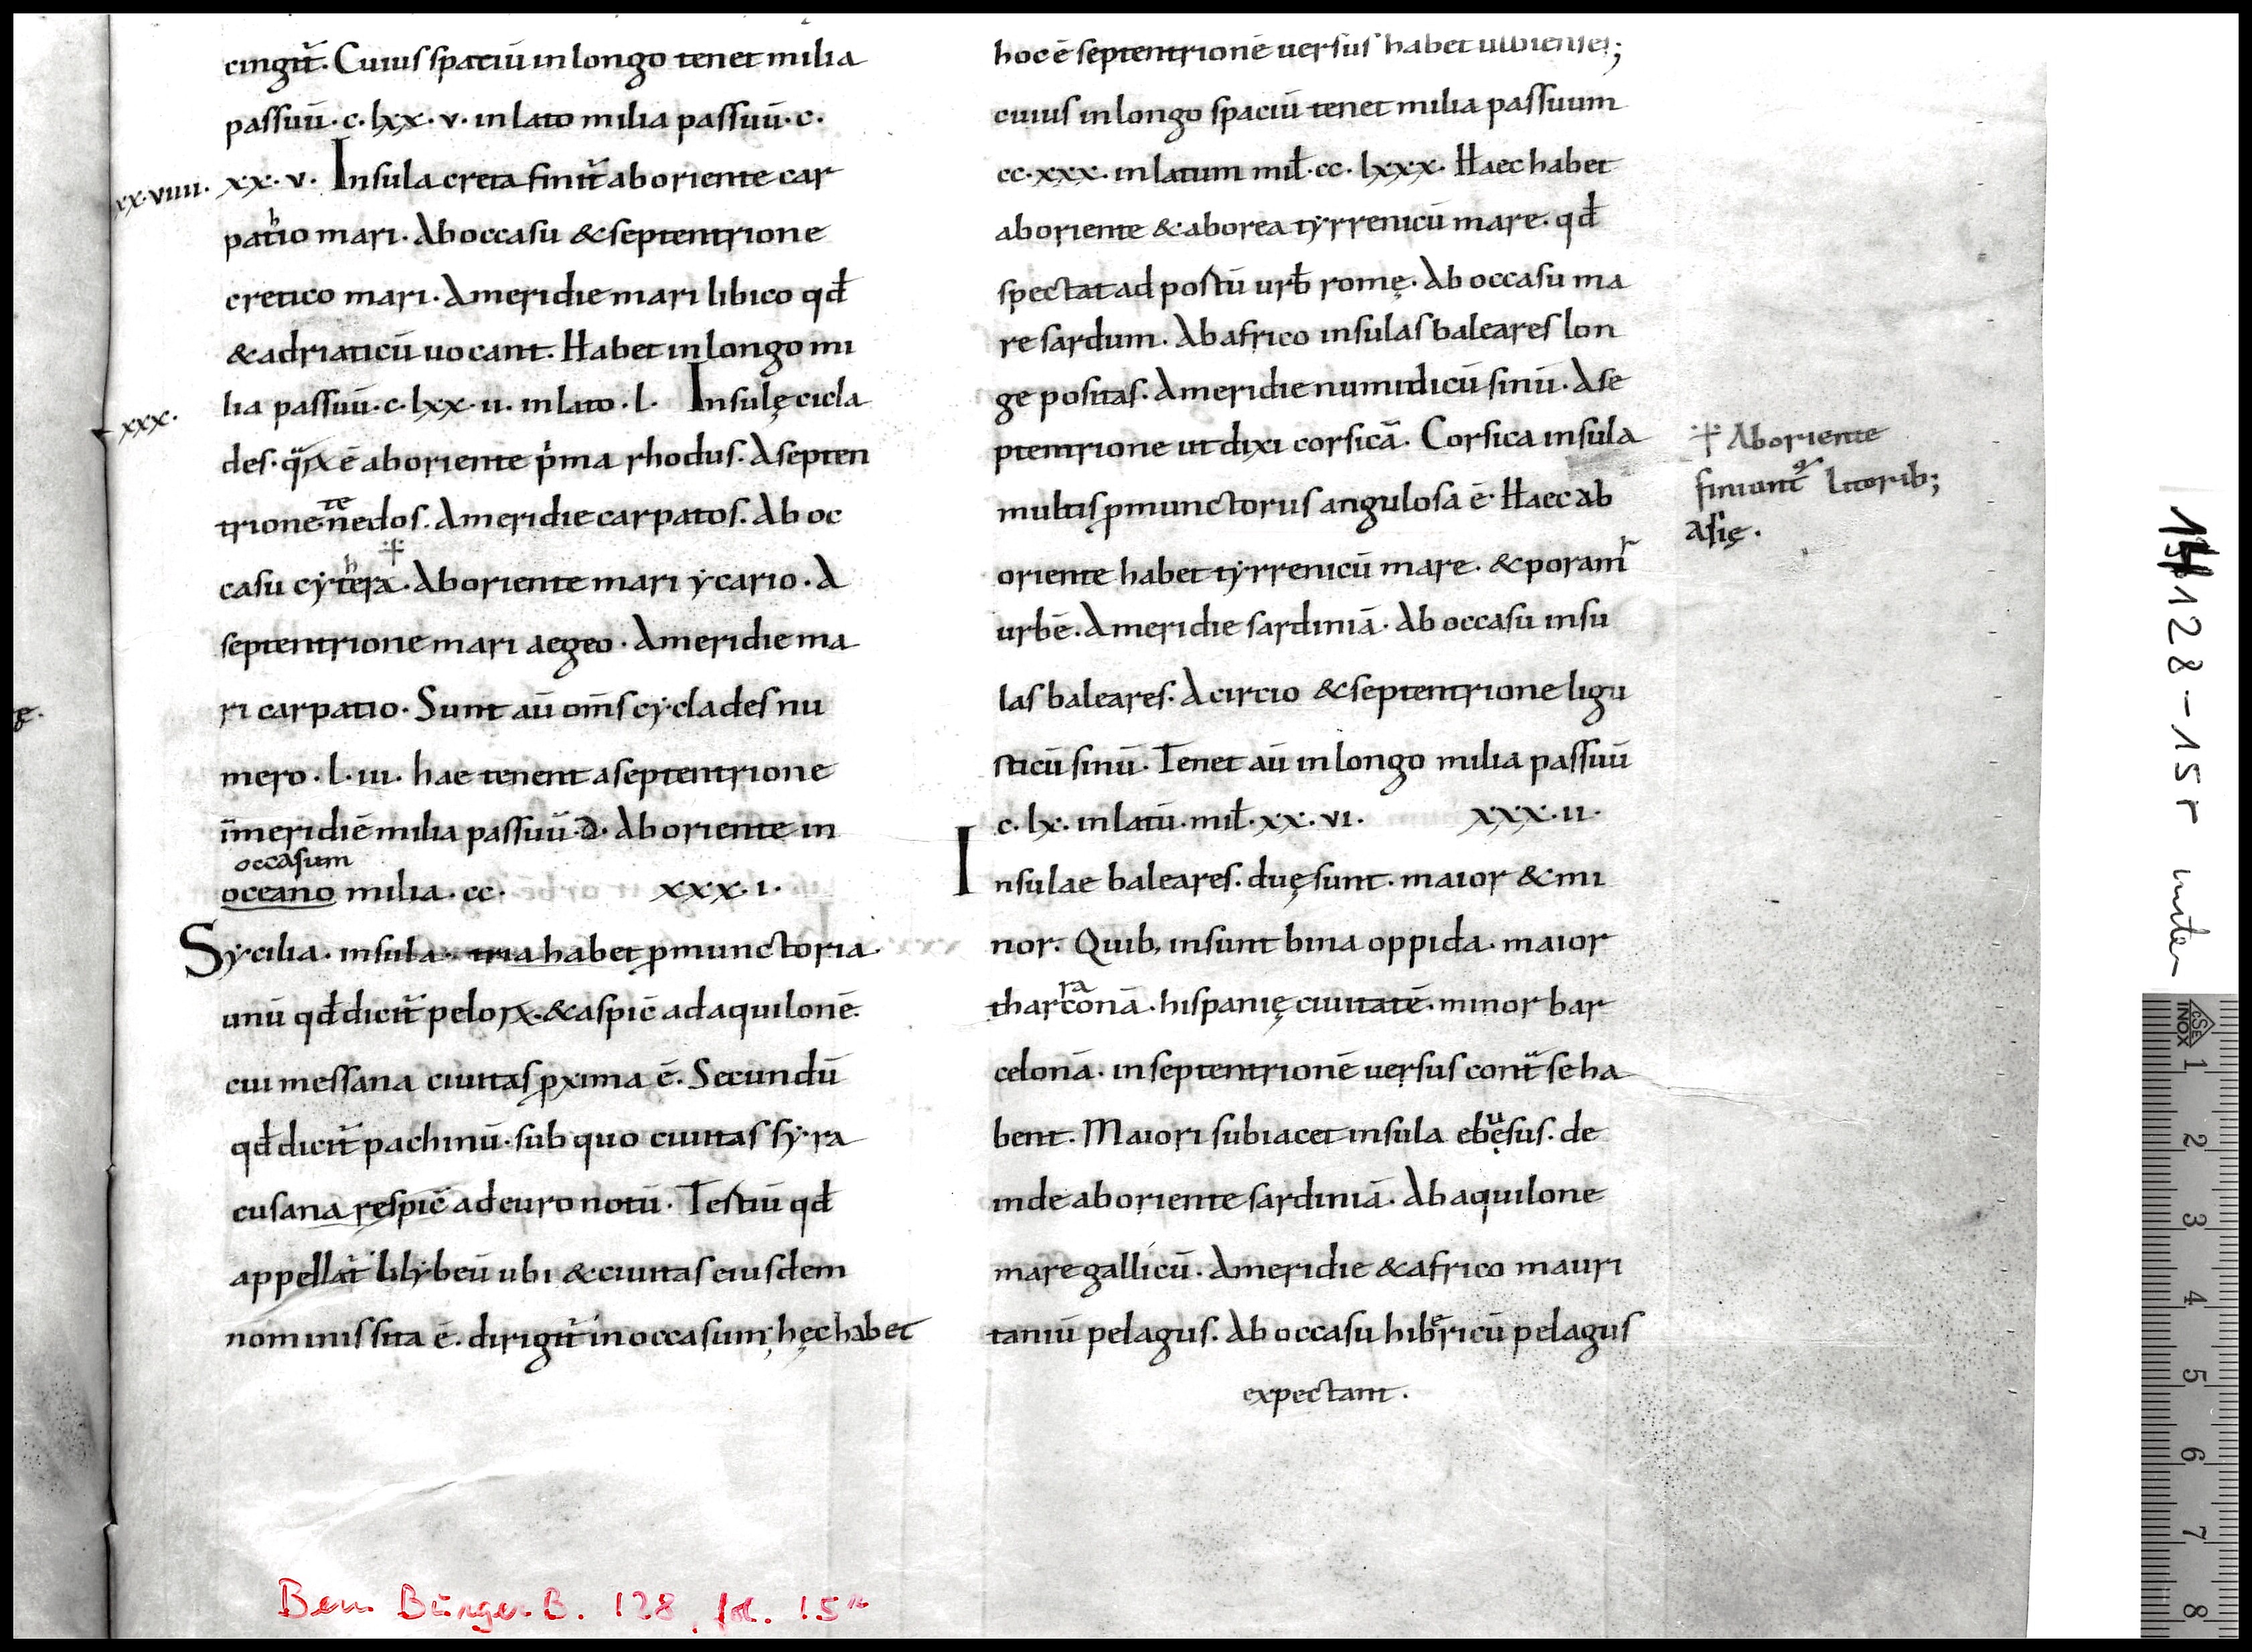 cingit̄. Cuius spatiū in longo tenet milia
passuū · c · lxx · v · in lato milia passuū · c ·
xx · viiii · xx · v · Insula creta finit̄ ab oriente car
pathio mari · Ab occasu & septentrione
cretico mari · A meridie mari libico qđ
& adriaticū uocant · Habet in longo mi
lia passuū · c · lxx · ii · in lato · l · Insulę cicla
xxx ·
des · ē ab oriente p̄ma rhodus · A septen
te
trione nedos · A meridie carpatos · Ab oc
casu cythera · Ab oriente mari ycario · A
septentrione mari aegeo · A meridie ma
ri carpatio · Sunt aū om̄s cyclades nu
mero · l · iii · hae tenent a septentrione
in meridiē milia passuū · d · Ab oriente in
occasum
oceano milia · cc · xxx · i ·
Sycilia · insula · tria habet pmunctoria ·
unū qđ dicit̄ pelorx · & aspic̄ ad aquilonē ·
cui messana ciuitas pxima ē · Secundū
qđ dicit̄ pachinū · sub quo ciuitas syra
cusana respic̄ ad euronotū · Testiū qđ
appellat̄ lilybeū ubi & ciuitas eiusdem
nominis sita ē · dirigit̄ in occasum; hęc habet
hoc ē septentrionē uersus habet ulbienses;
cuius in longo spaciū tenet milia passuum
cc · xxx · in latum mił · cc · lxxx · Haec habet
ab oriente & a borea tyrrenicū mare · qđ
spectat ad postū urƀ romę · Ab occasu ma
re sardum · Ab africo insulas baleares lon
ge positas · A meridie numidicū sinū · A se
ptentrione ut dixi corsicā · Corsica insula
multis pmunctorus angulosa ē · Haec ab
oriente habet tyrrenicū mare · & poram
urbē · A meridie sardiniā · Ab occasu insu
las baleares · A circio & septentrione ligu
sticū sinū · Tenet aū in longo milia passuū
c · lx · in latū · mił · xx · vi · xxx · ii ·
Insulae baleares · duę sunt · maior & mi
nor · Quib, insunt bina oppida · maior
ra
tharconā · hispanię ciuitatē · minor bar
celonā · in septentrionē uersus cont̄ se ha
bent · Maiori subiacet insula ebęsus · de
inde ab oriente sardiniā · Ab aquilone
mare gallicū · A meridie & africo mauri
taniū pelagus · Ab occasu hibericū pelagus
expectant ·
Ab oriente
finiunt̄ litorib;
asię ·
128 - 15r unten
INOX
1
2
3
4
5
6
7
8
Bern Bürger B. 128, fol. 15r